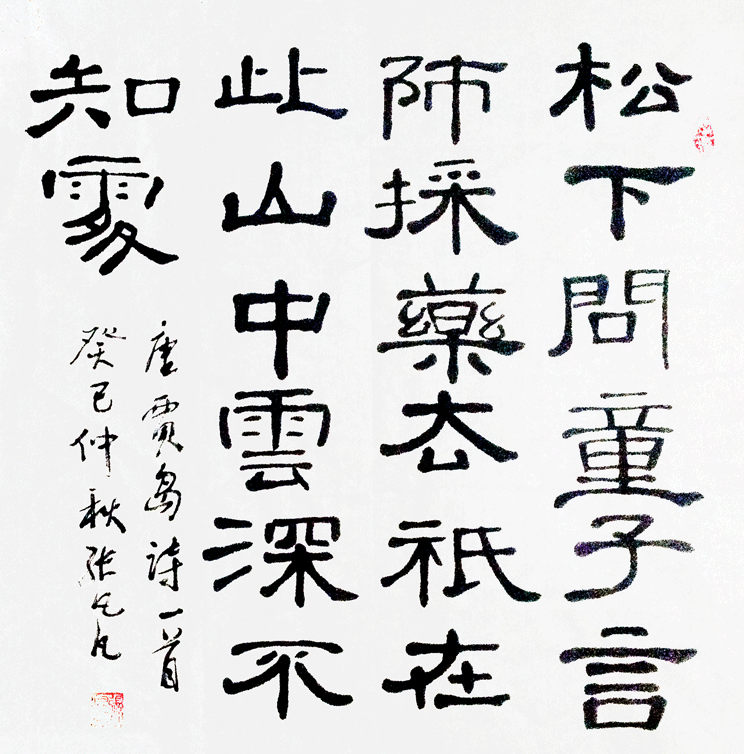 松下問童子言
師採藥去祇在
此山中雲深不
知處
唐賈島詩一首
癸巳仲秋张